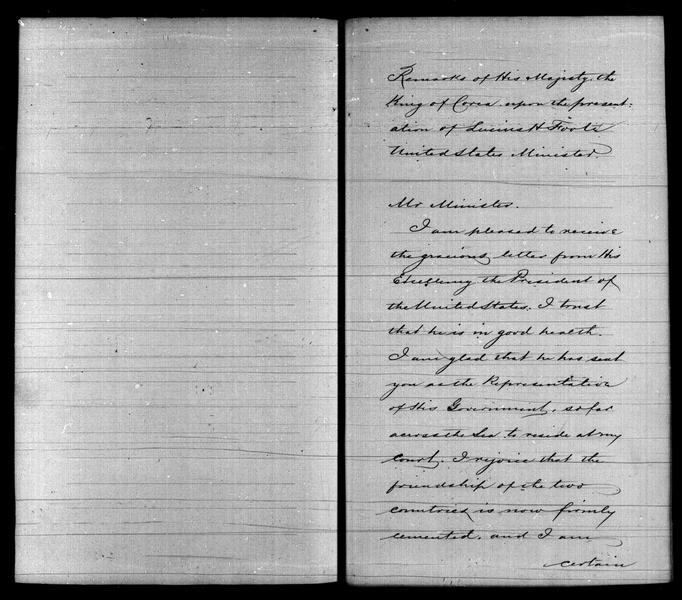 Remarks of His Majesty, the
King of Corea upon the present=
ation of Lucius H Foote
United States Minister.
Mr Minister.
I am pleased to receive
the gracious letter from His
Excellency the President of
the United States. I trust
that he is in good health.
I am glad that he has sent
you as the Representative
of His Government, so far
across the Sea to reside at my
court. I rejoice that the
friendship of the two
countries is now firmly
cemented, and I am
certain